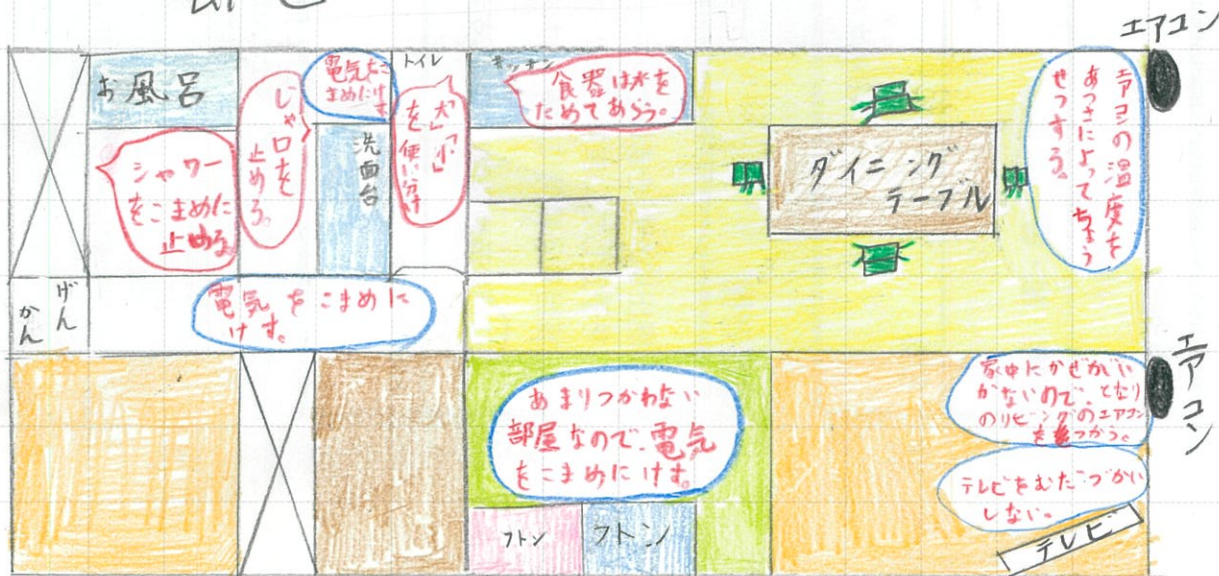 エアコン
お風呂
シャワー
をこまめに
止める
じゃ口を
止めろ。
電気をこ
まめにけす
洗面台
トイレ
「大」「小」
を使い分け
キッチン
食器は水を
ためてあらう。
ダイニング
テーブル
エアコンの温度を
あつさによってちょう
せつする。
げん
かん
電気をこまめに
けす。
あまりつかわない
部屋なので、電気
をこまめにけす。
フトン
フトン
エアコン
家中にかぜがい
かないので、となり
のリビングのエアコン
をつかう。
テレビをむだづかい
しない。
テレビ